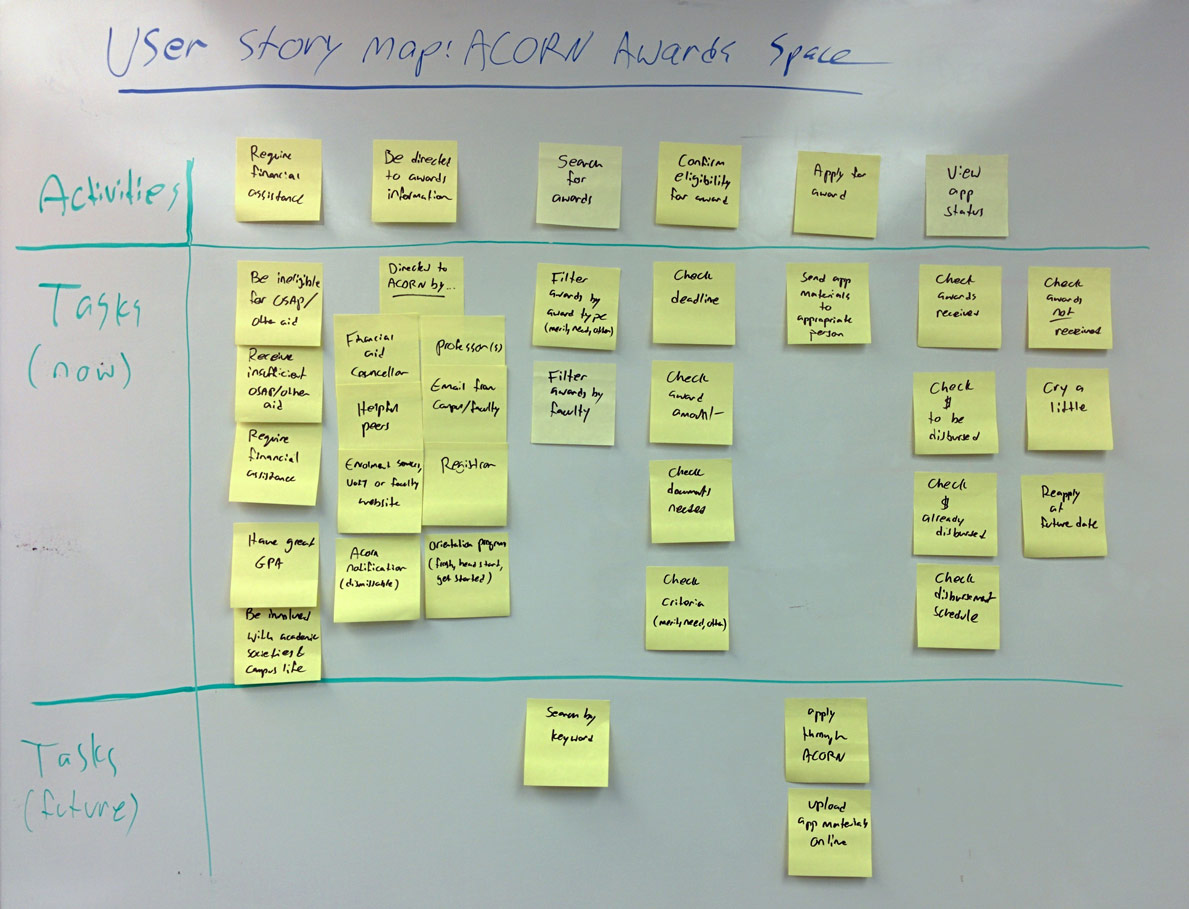 User Story Map: ACORN Awards Space
Activities
Require
financial
assistance
Be directed
to awards
information
Search
for
awards
Confirm
eligibility
for award
Apply for
award
View
app
status
Tasks
(now)
Be ineligible
for OSAP/
other aid
Receive
insufficient
OSAP/other
aid
Require
financial
assistance
Have great
GPA
Be involved
with academic
societies &
campus life
Directed to
ACORN by...
Financial
aid
Councellor
professor(s)
Helpful
peers
Email from
Campus/faculty
Enrolment services,
UofT or faculty
website
Registrar
Acorn
notification
(dismissable)
Orientation program
(frosh, head start,
get started)
Filter
awards by
award type
(merit, need, other)
Filter
awards by
faculty
Check
deadline
Check
award
amount
Check
documents
needed
Check
Criteria
(merit, need, other)
Send app
materials
to
appropriate
person
Check
awards
received
Check
$
to be
disbursed
Check
$
already
disbursed
Check
disbursement
schedule
Check
awards
not
received
Cry a
little
Reapply
at
future date
Tasks
(future)
Search by
keyword
apply
through
ACORN
upload
app materials
online